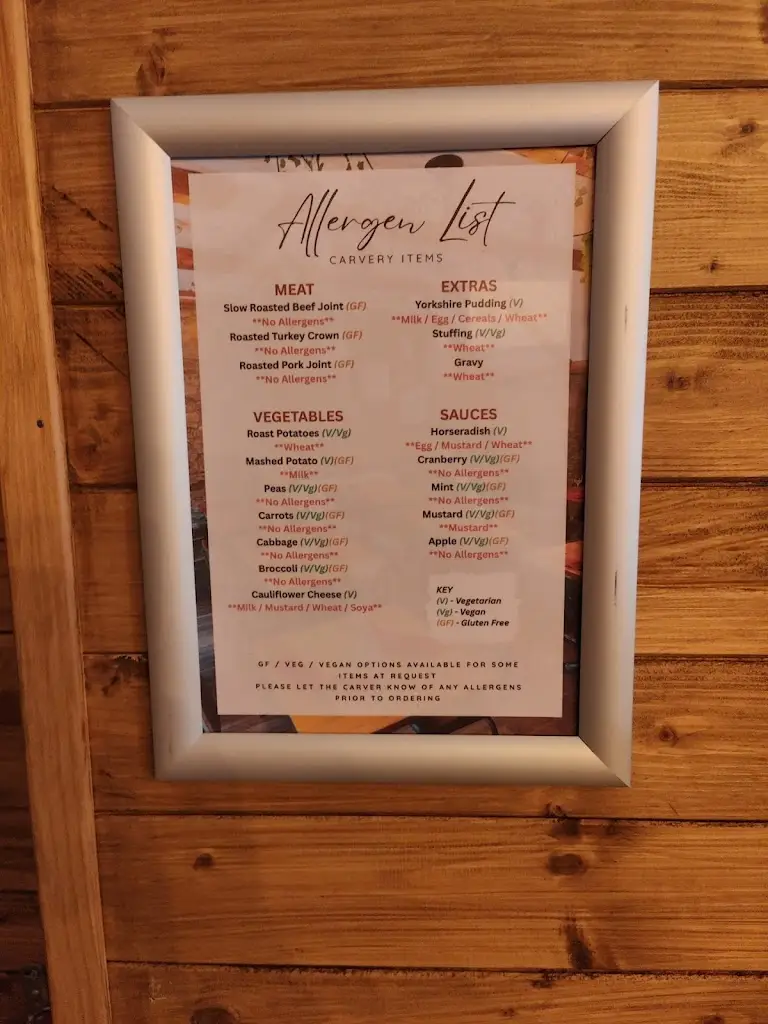 Allergen List
CARVERY ITEMS
MEAT
Slow Roasted Beef Joint (GF)
**No Allergens**
Roasted Turkey Crown (GF)
**No Allergens**
Roasted Pork Joint (GF)
**No Allergens**
VEGETABLES
Roast Potatoes (V/Vg)
**Wheat**
Mashed Potato (V)(GF)
**Milk**
Peas (V/Vg)(GF)
**No Allergens**
Carrots (V/Vg)(GF)
**No Allergens**
Cabbage (V/Vg)(GF)
**No Allergens**
Broccoli (V/Vg)(GF)
**No Allergens**
Cauliflower Cheese (V)
**Milk / Mustard / Wheat / Soya**
EXTRAS
Yorkshire Pudding (V)
**Milk / Egg / Cereals / Wheat**
Stuffing (V/Vg)
**Wheat**
Gravy
**Wheat**
SAUCES
Horseradish (V)
**Egg / Mustard / Wheat**
Cranberry (V/Vg)(GF)
**No Allergens**
Mint (V/Vg)(GF)
**No Allergens**
Mustard (V/Vg)(GF)
**Mustard**
Apple (V/Vg)(GF)
**No Allergens**
KEY
(V) - Vegetarian
(Vg) - Vegan
(GF) - Gluten Free
GF / VEG / VEGAN OPTIONS AVAILABLE FOR SOME
ITEMS AT REQUEST
PLEASE LET THE CARVER KNOW OF ANY ALLERGENS
PRIOR TO ORDERING